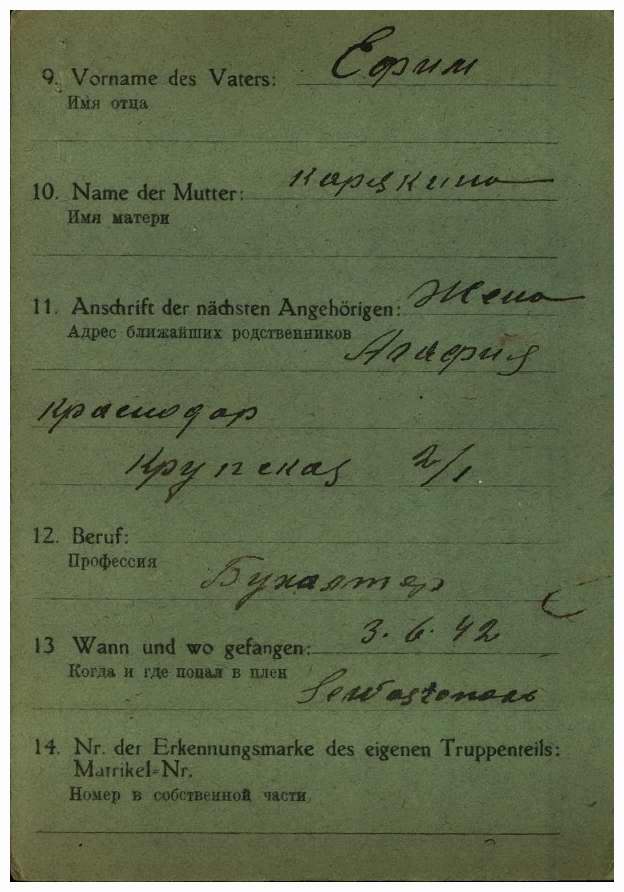 9. Vorname des Vaters: Ефим
Имя отца
10. Name der Mutter: Карякина
Имя матери
11. Anschrift der nächsten Angehörigen: Жена
Адрес ближайших родственников
Агафия
Краснодар
Крупская 2/1
12. Beruf:
Профессия
Бухалтер
13 Wann und wo gefangen: 3. 6. 42
Когда и где попал в плен
14. Nr. der Erkennungsmarke des eigenen Truppenteils:
Matrikel-Nr.
Номер в собственной части